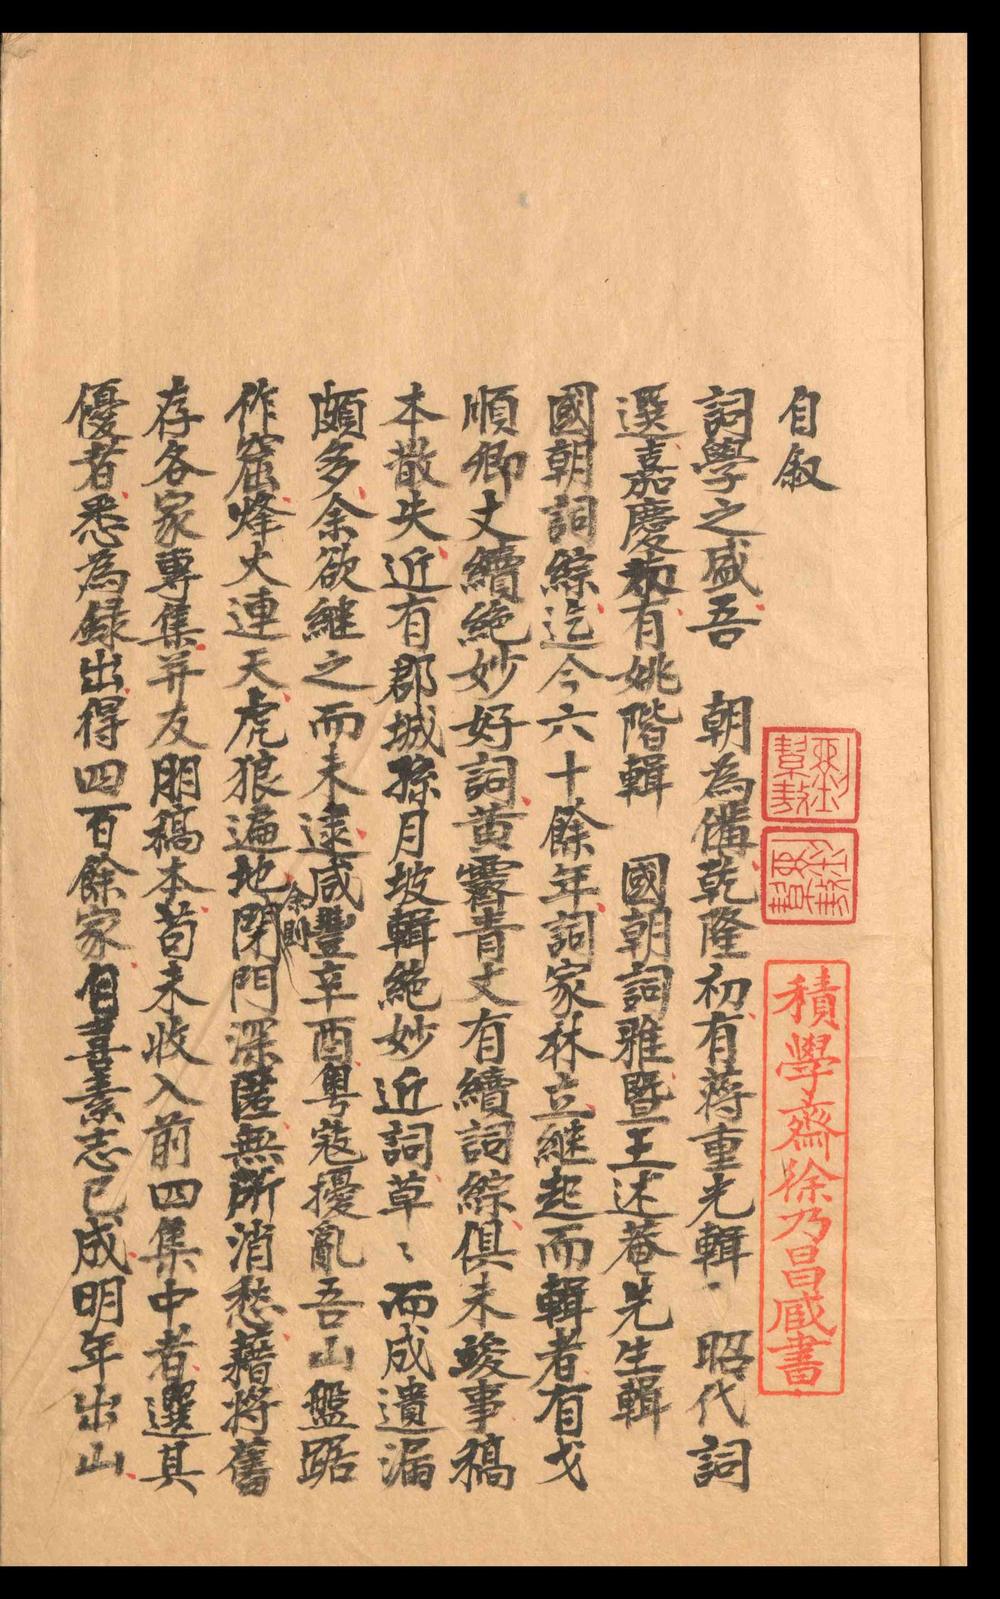 自叙
詞學之盛吾　朝為備乾隆初有蔣重光輯　昭代詞
選嘉慶初有姚階輯　國朝詞雅暨王述菴先生輯
國朝詞綜迄今六十餘年詞家林立継起而輯者有戈
順卿丈續絶妙好詞黄霽青丈有續詞綜俱未竣事稿
本散失近有郡城孫月坡輯絶妙近詞草〻而成遺漏
頗多余欲継之而未逮咸豐辛酉粤寇擾亂吾山盤踞
作窟烽火連天虎狼遍地余則閉門深匿無所消愁藉將舊
存各家專集并友朋稿本苟未收入前四集中者選其
優者悉為録出得四百餘家自喜素志已成明年出山
積學齋徐乃昌臧書